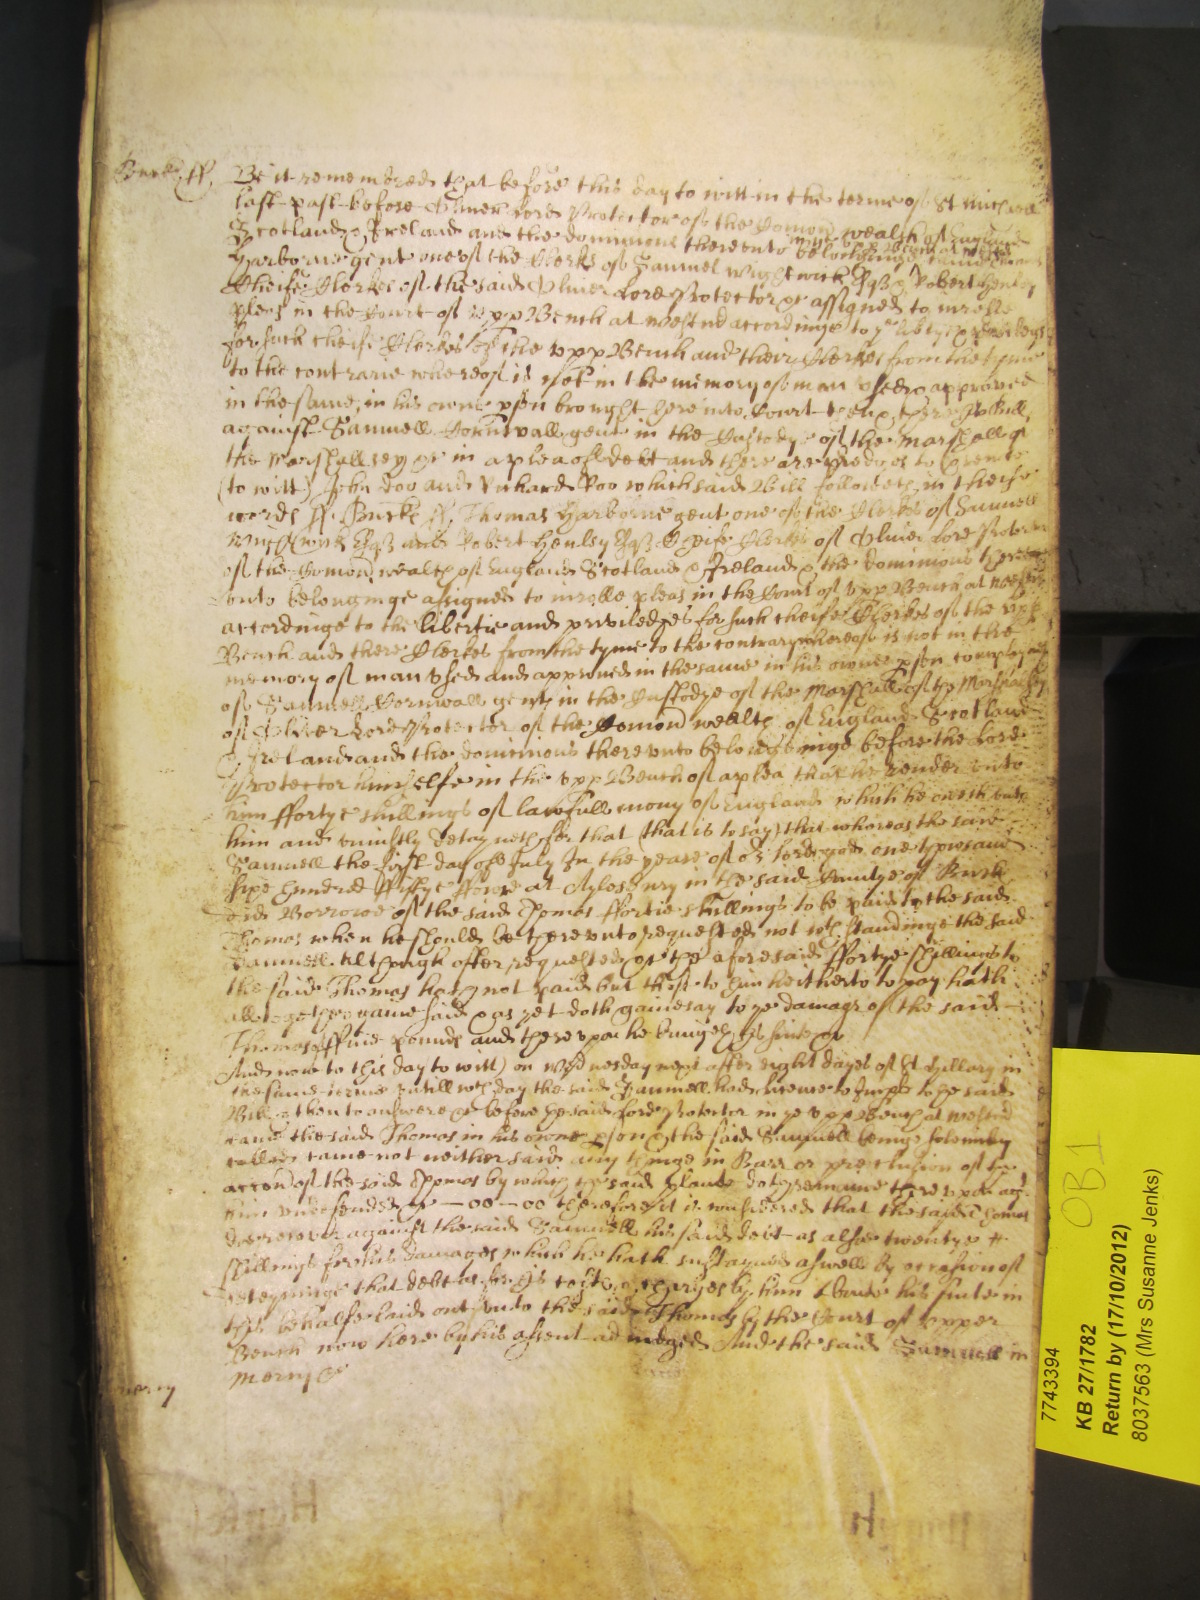 Buck ff. Be it remembred that before this day to witt in the terme of St Michaell
last past before Oliver Lord Protector of the Comon wealth of England
Scotland & Ireland and the dominions thereunto belonginge came Thomas
Harborne gent one of the Clerkes of Samuel Wightwick Esqr & Robert Henley
Cheife Clerkes of the said Oliver Lord Protector &c assigned to inrolle
pleas in the Court of Upp Bench at Westmr accordinge to ye libtyes & priviledges
for such cheife Clerkes of the Upp Bench and their Clerkes from the tyme
to the contrarie whereof is not in the memory of man used & approved
in the same, in his owne pson brought here into Court then & there his Bill
against Samuell Cornwall gent in the Custody of the Marshall of
the Marshallsey &c in a plea of debt and there are pledges to
(to witt) John Doo and Richard Roo which said Bill followeth in theise
words ff. Bucks ff. Thomas Harborne gent one of the Clerkes of Samuell
Wightwick Esqr and Robert Henley Esqr Cheife Clerkes of Oliver Lord Protector
of the Comon wealth of England Scotland & Ireland & the dominions there
unto belonginge assigned to inrolle pleas in the Court of Upp Bench at Westmr
accordinge to the libertie and priviledges for such cheife Clerkes of the Upp
Bench and there Clerkes from the tyme to the contrary whereof is not in the
memory of man used and approved in the same in his owne pson
of Samuell Cornwall gent in the Custodye of the Marshall of the Marshalsey
of Oliver Lord Protector of the Comon wealth of England Scotland
& Ireland and the dominions thereunto belonginge before the Lord
Protector himselfe in the Upp Bench of a plea that he render unto
him fforty shillings of lawfull mony of England which he oweth unto
him and uniustly detayneth for that (that is to say) that whereas the said
Samuell the first day of July In the yeare of or Lord god one thousand
sixe hundred fiftye at Aylesbury in the said Countye of Buck
did Borrowe of the said Thomas ffortie shillings to be paid to the said
Thomas when he should be thereunto requested not wth standinge the said
Samuell althoughe often requested &c the aforesaid ffortye shillings to
the said Thomas hath not paid but those to him heitherto to pay hath
alltogether gainesaid & as yet doth gainesay to ye damage of the said
Thomas ffive pounds and thereupon he bringeth his suite &c
And now to this day to witt) on Wednesday next after eight dayes of St Hillary in
the same terme untill wch day the said Samuell had licence to Imple to the said
Bill & then to answere &c before the said Lord Protector in ye Upp Bench at Westmr
came the said Thomas in his owne pson & the said Samuell beinge solemnly
called came not neither said any thinge in Barr or preclusion of the
accon of the said Thomas by which the said plaint doth remaine thereupon agt
him undefended &c —oo—oo therefore it is considered that the said Thomas
doe recover against the said Samuell his said debt as also twentye
shillings for his damages which he hath sustayned aswell by occasion of
deteyninge that debt as for his costs & charges by him about his suite in
this behalfe laid out unto the said Thomas by the Court of Upper
Bench now here by his assent adiudged And the said Samuell in
mercy &c
mercy
7743394
KB 27/1782
Return by (17/10/2012)
8037563 (Mrs Susanne Jenks)
OB1